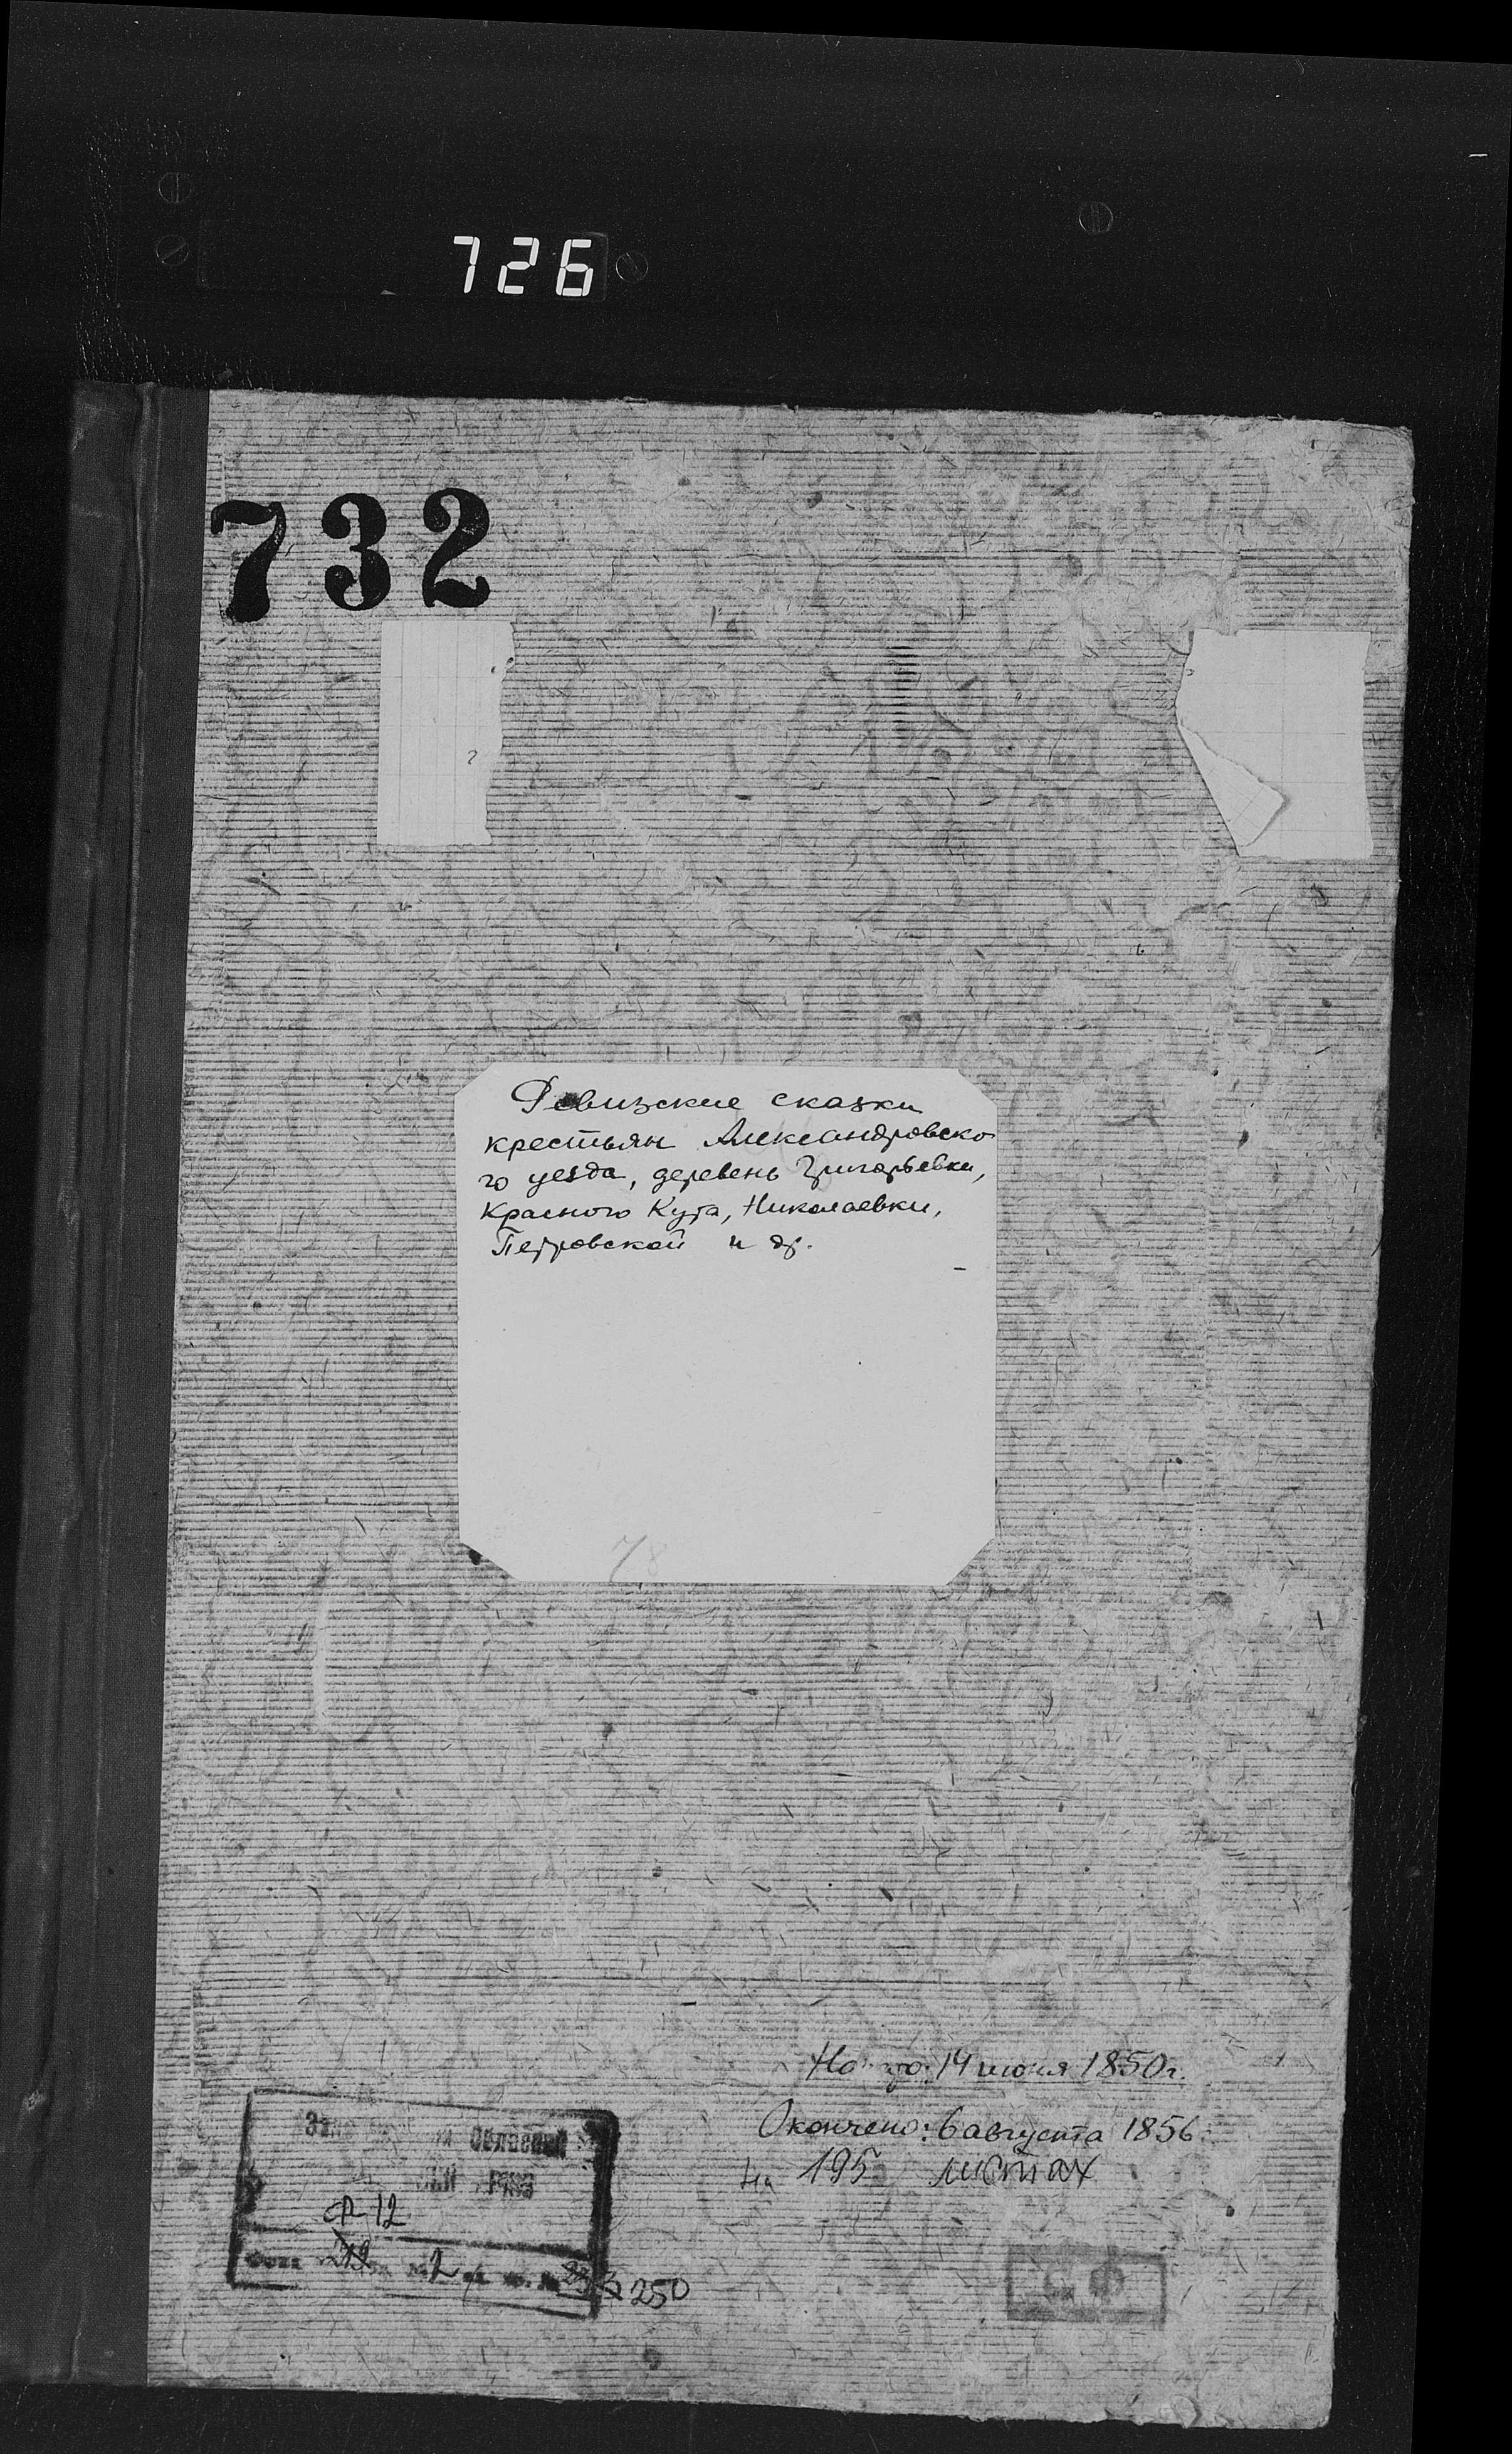 726
732
Ревизские сказки
крестьян Александровско
го уезда, деревень Григорьевки,
Красного Кута, Николаевки,
Петровской и др.
78
14 июня 1850 г.
Окончено: 6 августа 1856
На 195 листах
Ф 12
2
250
СФ